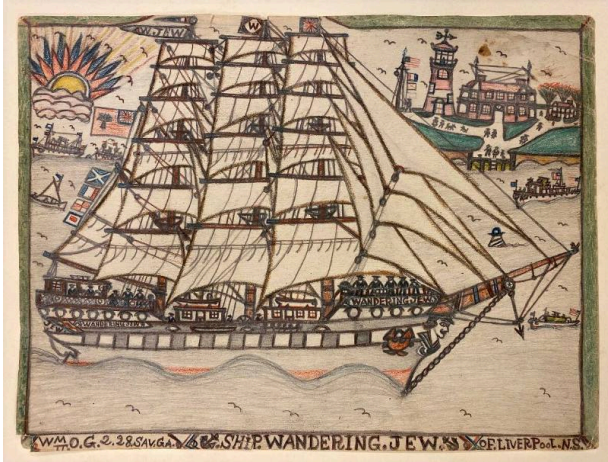 W.JAW
W
WANDERING.JEW.
WANDERING.JEW.
WM.O.G.2.28.SAV.GA. SHIP.WANDERING.JEW. OF.LIVERPOOL.N.S.